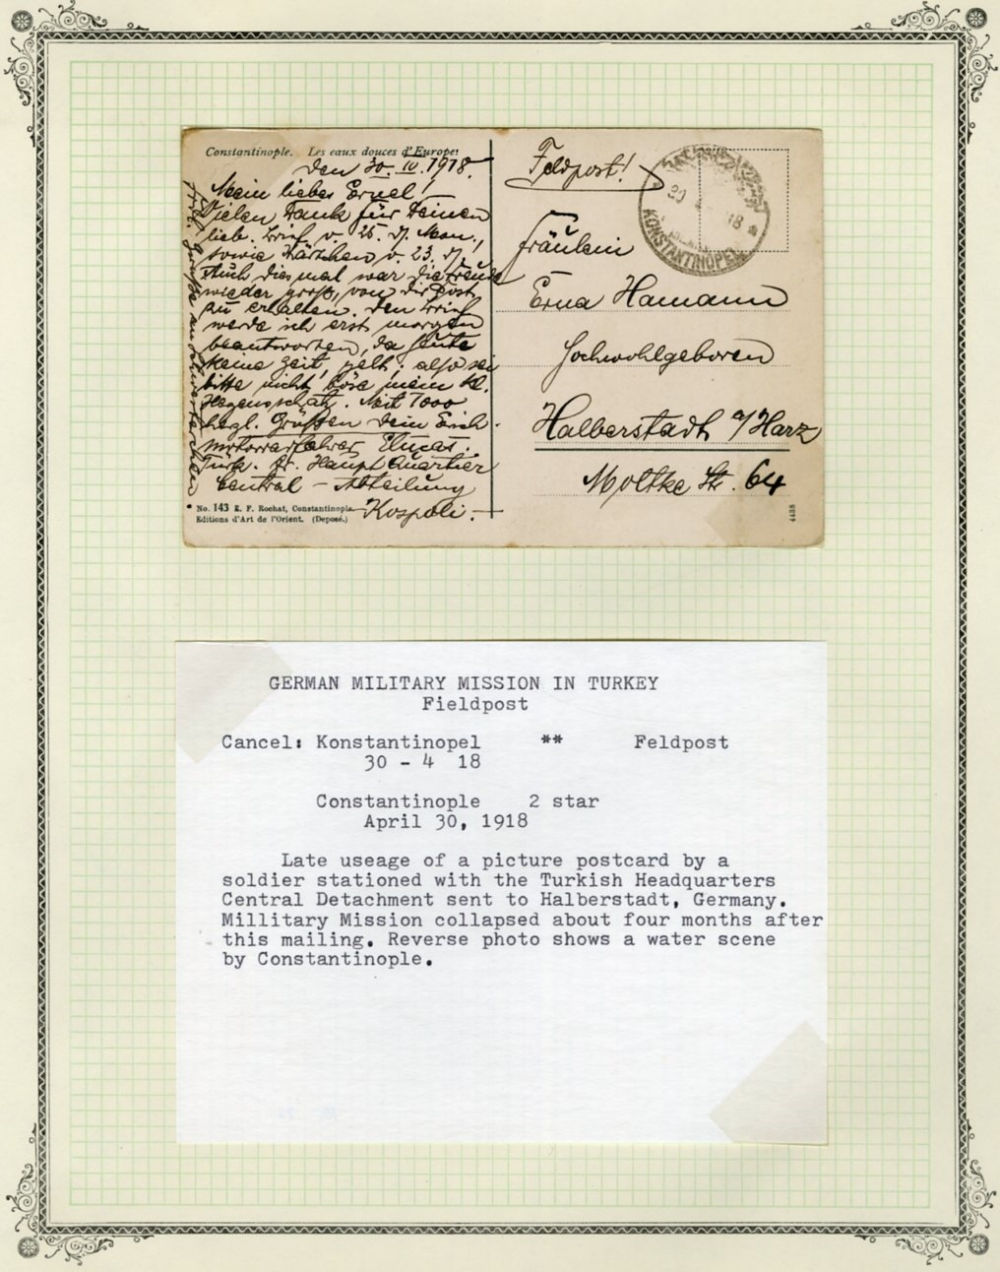 Constantinople. Les eaux douces d'Europe:
den 30. IV. 1918.
Mein liebes Ernel!
Vielen Dank für Deinen
lieb. Brief v. 25. d. Mon.,
sowie Kärtchen v. 23. d.
Auch diesmal war die Freude
wieder groß, von dir Post
zu erhalten. Den Brief
werde ich erst morgen
beantworten, da heute
keine Zeit, gelt; also sei
bitte nicht böse mein kl.
Herzensschatz. Mit 1000
herzl. Grüßen Dein Erich.
Türk. Gr. Haupt Quartier
Central - Abteilung
Kospoli.
No. 143 E. F. Rochat, Constantinople
Editions d'Art de l'Orient. (Deposé.)
Feldpost!
30 4 18
KONSTANTINOPEL
Fräulein
Erna Hamann
Hochwohlgeboren
Halberstadt a/Harz
Moltke Str. 64
4438
GERMAN MILITARY MISSION IN TURKEY
Fieldpost
Cancel: Konstantinopel ** Feldpost
30 - 4 18
Constantinople 2 star
April 30, 1918
Late useage of a picture postcard by a
soldier stationed with the Turkish Headquarters
Central Detachment sent to Halberstadt, Germany.
Millitary Mission collapsed about four months after
this mailing. Reverse photo shows a water scene
by Constantinople.